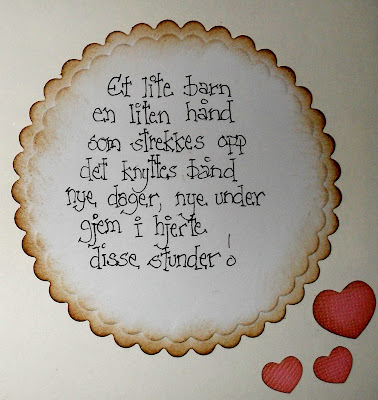 Et lite barn
en liten hånd
som strekkes opp
det knyttes bånd
nye dager, nye under
gjem i hjerte
disse stunder!